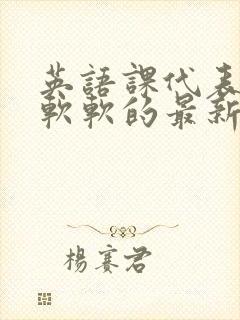 英語課代表
軟軟的最新
楊賽君